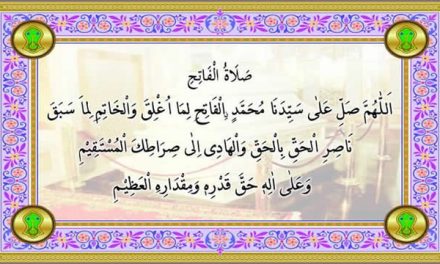 صَلَاةُ الْفَاتِحِ
اَللّٰهُمَّ صَلِّ عَلٰى سَيِّدِنَا مُحَمَّدٍ ࣙالْفَاتِحِ لِمَا اُغْلِقَ وَالْخَاتِمِ لِمَا سَبَقَ
نَاصِرِ الْحَقِّ بِالْحَقِّ وَالْهَادِى اِلٰى صِرَاطِكَ الْمُسْتَقِيْمِ
وَعَلٰى اٰلِهِ حَقَّ قَدْرِهِ وَمِقْدَارِهِ الْعَظِيْمِ